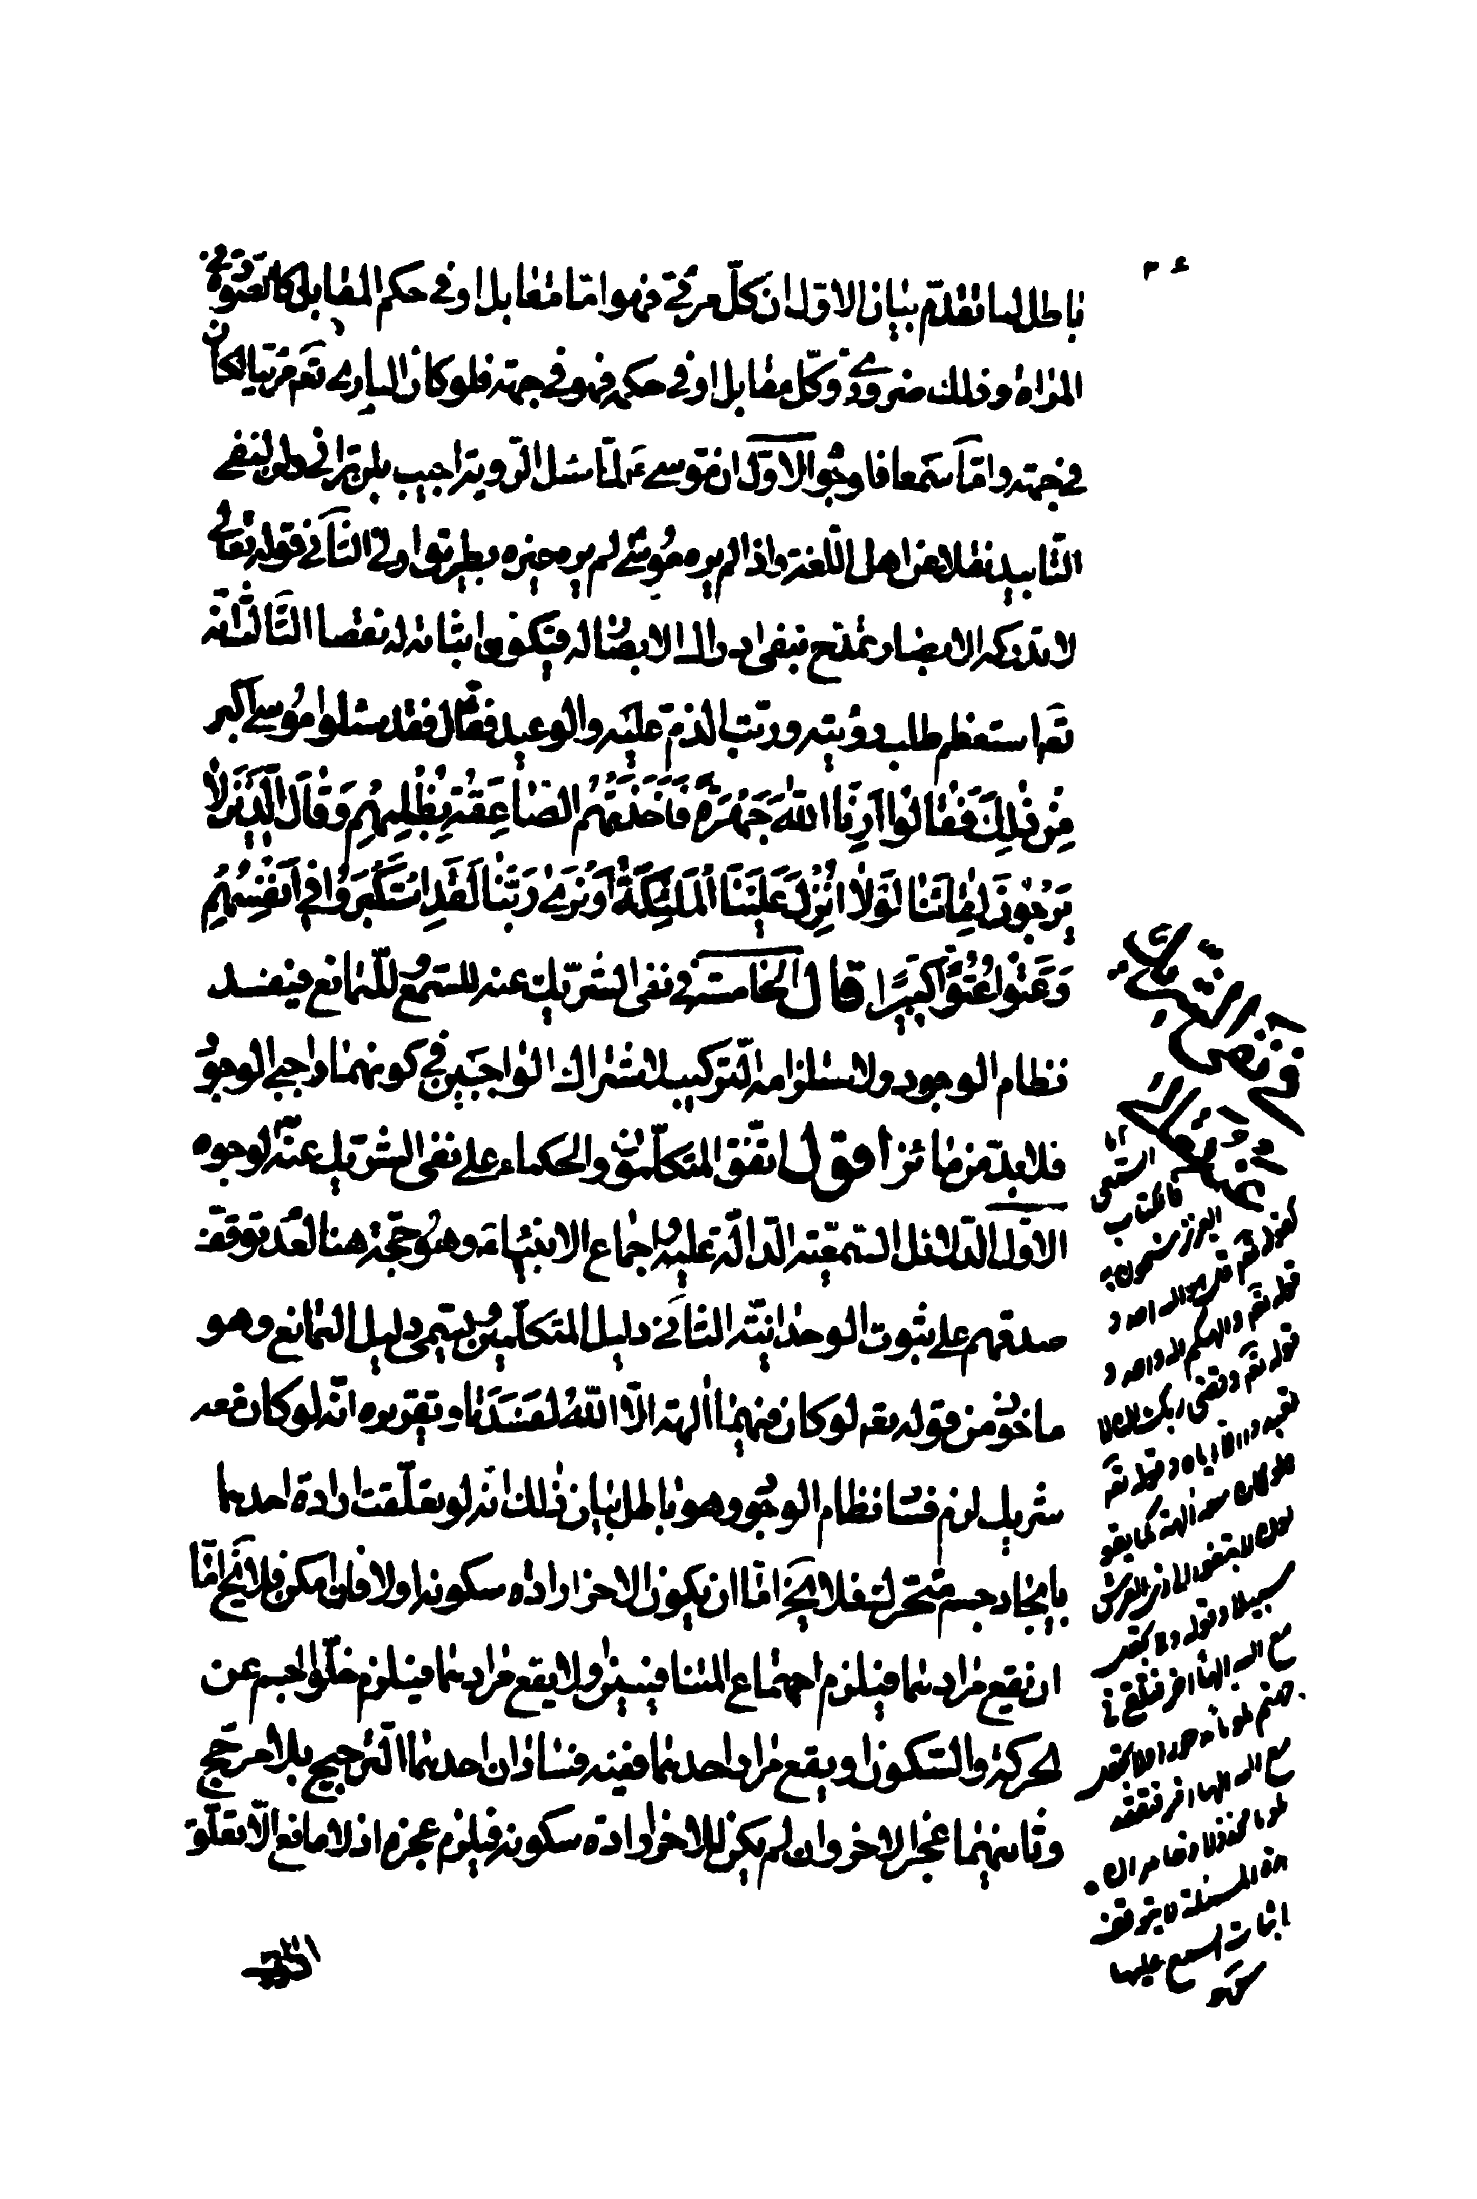 باطل لما تقدم بيان الاول ان كل مرئي فهو اما مقابل او في حكم المقابل كالصورة في
المراة وذلك ضروري وكل مقابل او في حكمه فهو في جهة فلو كان الباري تعم مرئيا لكان
في جهة واما سمعا فلوجوه الاول ان موسى ع لما سئل الروية اجيب بلن تراني ولن لنفي
التابيد نقلا عن اهل اللغة واذا لم يره موسى لم يره غيره بطريق اولى الثاني قوله تعالى
لا تدركه الابصار تمدح بنفي ادراك الابصار له فيكون اثباته له نقصا الثالث انه
تعم استعظم طلب رؤيته ورتب الذم عليه والوعيد فقال فقد سئلوا موسى اكبر
مِن ذٰلِكَ فَقٰالُوا اَرِنَا اللّٰهَ جَهْرَةً فَاَخَذَتْهُمُ الصّٰاعِقَةُ بِظُلْمِهِمْ وَقٰالَ الَّذينَ لاٰ
يَرْجُونَ لِقٰائَنٰا لَوْلاٰ اُنْزِلَ عَلَيْنَا الْمَلٰئِكَةُ اَوْ نَرىٰ رَبَّنٰا لَقَدِ اسْتَكْبَرُوا في اَنْفُسِهِمْ
وَعَتَوْا عُتُوًّا كَبيرًا قال الخامسة في نفي الشريك عنه للسمع وللتمانع فيفسد
نظام الوجود ولاستلزامه التركيب لاشتراك الواجبين في كونهما واجبي الوجود
فلا بد من مائز اقول اتفق المتكلمون والحكماء على نفي الشريك عنه لوجوه
الاول الدلائل السمعية الدالة عليه واجماع الانبياء وهو حجة هنا لعدم توقف
صدقهم على ثبوت الوحدانية الثاني دليل المتكلمين ويسمى دليل التمانع وهو
ماخوذ من قوله تعم لو كان فيهما اٰلهة الا اللّٰهُ لَفَسَدَتٰا وتقريره انه لو كان معه
شريك لزم فساد نظام الوجود وهو باطل بيان ذلك انه لو تعلقت ارادة احدهما
بايجاد جسم متحرك فلا يخ اما ان يكون للاخر ارادة سكونه اولا فان امكن فلا يخ اما
ان يقع مرادهما فيلزم اجتماع المتنافيين اولا يقع مرادهما فيلزم خلو الجسم عن
الحركة والسكون او يقع مراد احدهما ففيه فسادان احدهما الترجيح بلا مرجح
وثانيهما عجز الاخر وان لم يكن للاخر ارادة سكونه فيلزم عجزه اذ لا مانع الا تعلق
في نفي الشريك
عنه تعالى
لقوله تعم قل هو الله احد و
قوله تعم والهكم اله واحد و
قوله تعم وقضى ربك ان لا
تعبدوا الا اياه وقوله تعم
لو كان معه الهة كما يقو
لون لابتغوا الى ذي العرش
سبيلا وقوله ولا تجعل
مع الله الها اخر فتلقى في
جهنم ملوما مدحورا لا تجعل
مع الله الها اخر فتقعد
هذه المسئلة لا يتوقف
اثبات السمع عليها